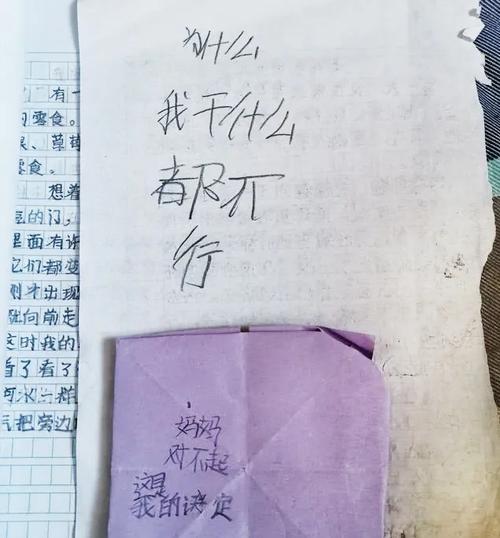 为什么
我干什么
都不
行
妈妈
对不起
这是
我的决定
有一
的零食。
、草莓
零食。
想着
的门,
里面有许
它们都变
刚才出现
向前走
这时我的
看了看了
河水一样
把旁边